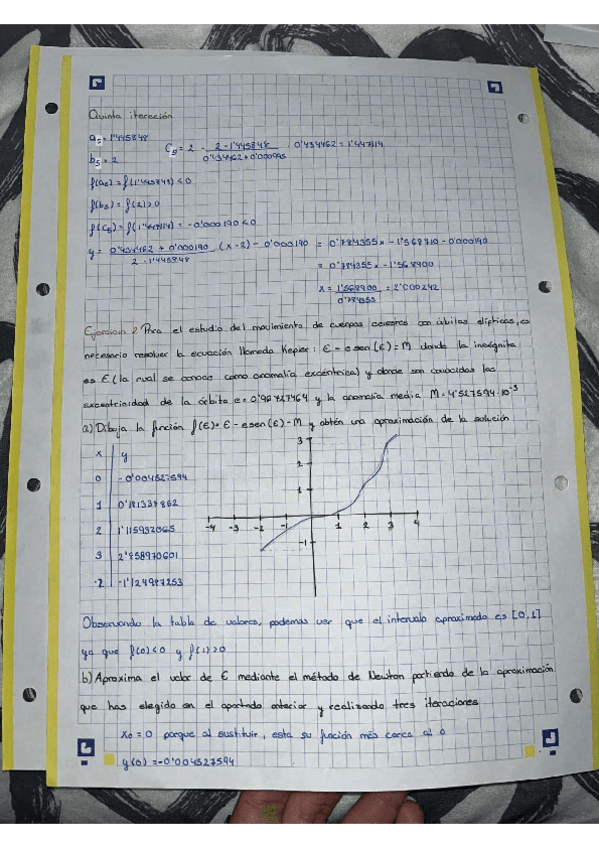 Quinta iteración
a₅ = 1'445848
b₅ = 2
C₅ = 2 - (2 - 1'445848)/(0'434462 + 0'000995) · 0'434462 = 1'447114
f(a₅) = f(1'445848) < 0
f(b₅) = f(2) > 0
f(C₅) = f(1'447114) = -0'000190 < 0
y = (0'434462 + 0'000190)/(2 - 1'445848) (x - 2) - 0'000190 = 0'784355x - 1'568710 - 0'000190
= 0'784355x - 1'568900
x = 1'568900/0'784355 = 2'000242
Ejercicio 2 Para el estudio del movimiento de cuerpos celestes con órbitas elípticas, es
necesario resolver la ecuación llamada Kepler: E - e sen(E) = M donde la incógnita
es E (la cual se conoce como anomalía excéntrica) y donde son conocidas las
excentricidad de la órbita e = 0'96727464 y la anomalía media M = 4'527594·10⁻³
a) Dibuja la función f(E) = E - e sen(E) - M y obtén una aproximación de la solución
x | y
0 | -0'004527594
1 | 0'181339862
2 | 1'115932065
3 | 2'858970601
-2 | -1'124987253
3
2
1
-4 -3 -2 -1 1 2 3 4
-1
Observando la tabla de valores, podemos ver que el intervalo aproximado es [0,1]
ya que f(0)<0 y f(1)>0
b) Aproxima el valor de E mediante el método de Newton partiendo de la aproximación
que has elegido en el apartado anterior y realizando tres iteraciones
x₀ = 0 porque al sustituir, esta su función más cerca al 0
y(0) = -0'004527594